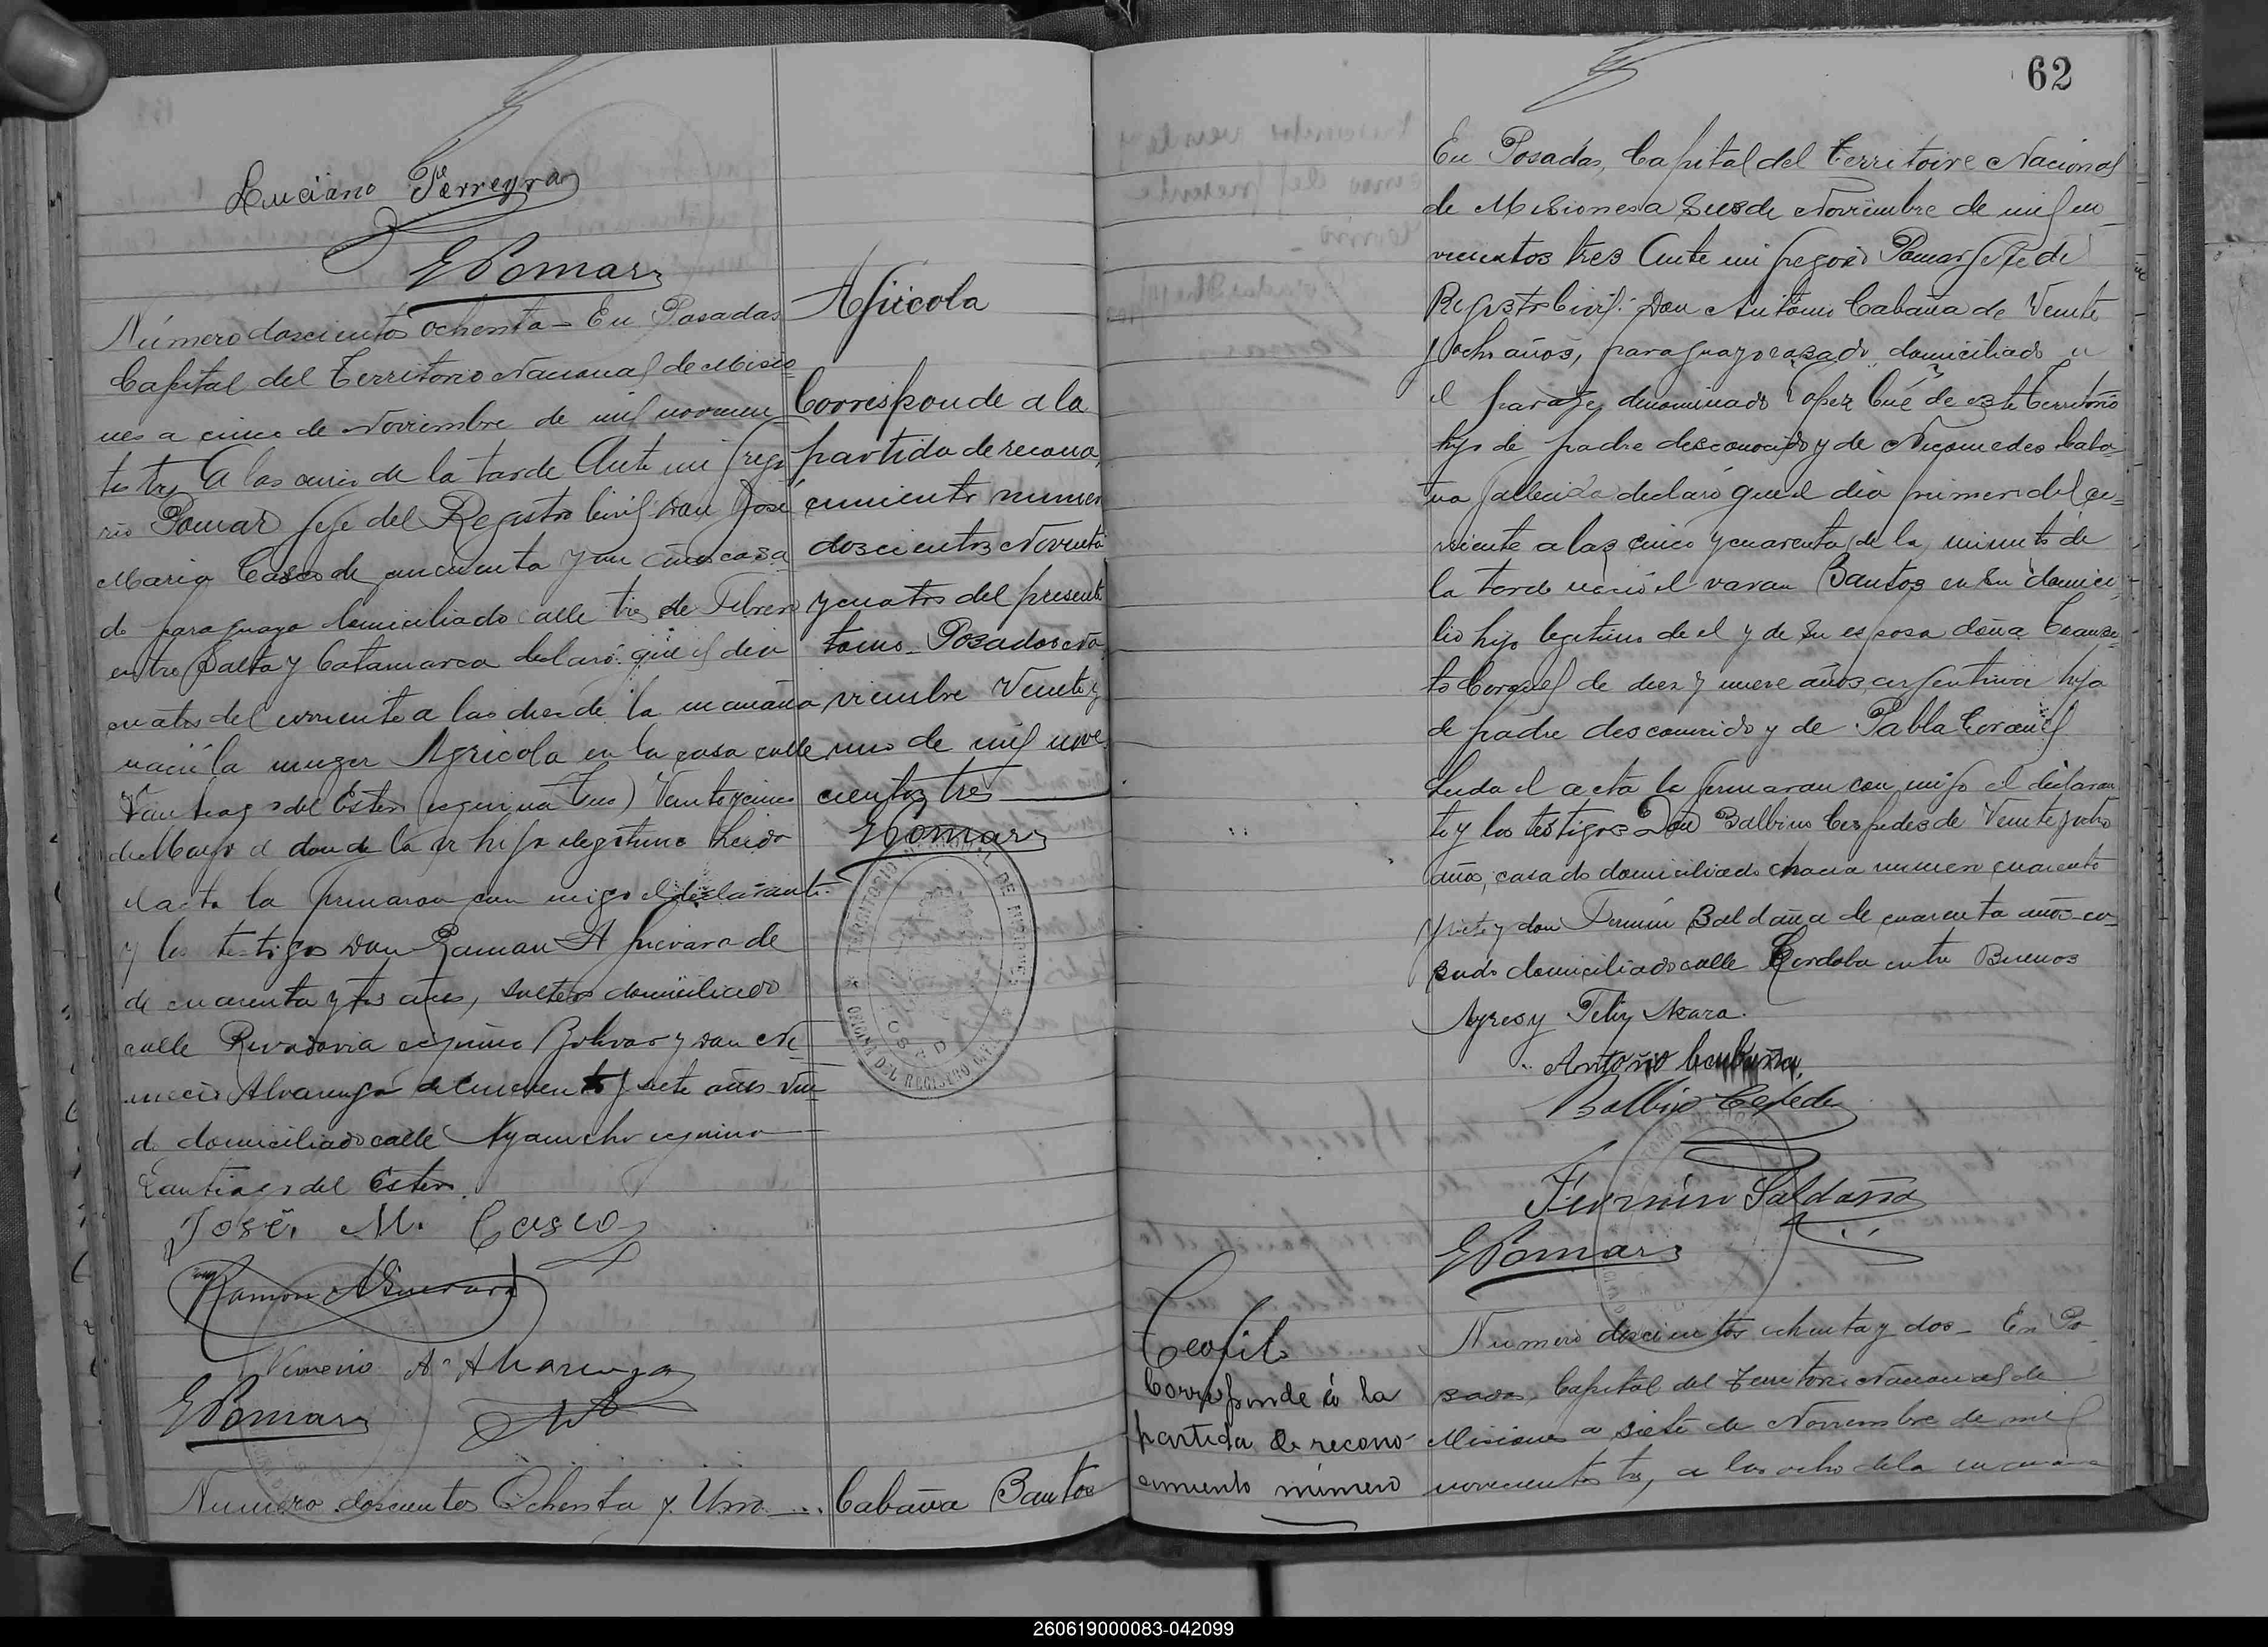 Luciano Ferreyra
GPomar
Número doscientos ochenta - En Posadas
Capital del Territorio Nacional de Misio=
nes a cinco de Noviembre de mil novecien
tos tres A las cinco de la tarde Ante mi Grego
rio Pomar Jefe del Registro Civil Don José
Maria Casco de cincuenta y un años casa
do paraguayo domiciliado calle tres de Febrero
entre Salta y Catamarca declaró: que el dia
cuatro del corriente a las diez de la mañana
nació la muger Agricola en la casa calle
Santiago del Estero esquina Veinte y cinco
de Mayo hija legitima Leida
el acta la firmaron con migo el declarante
y los testigos Don Ramon A Guevara de
de cuarenta y tres años, soltero domiciliado
calle Rivadavia esquina Bolivar y Don Ne
mecio Alvarenga de cincuenta y siete años viu
do domiciliado calle Ayacucho esquina
Santiago del Estero.
José M. Casco
Ramon A Guevara
Nemecio A. Alvarenga
GPomar
Numero doscientos Ochenta y Uno
Agricola
Corresponde a la
partida de recono
cimiento numero
doscientos Noventa
y cuatro del presente
tomo - Posadas No
viembre Veinte y
uno de mil nove
cientos tres
GPomar
TERRITORIO NACIONAL DE MISIONES
OFICINA DEL REGISTRO CIVIL
POSADAS
Cabaña Santos
62
En Posadas, Capital del Territoire Nacional
de Misiones a seis de Noviembre de mil no
vecientos tres Ante mi Gregorio Pomar Jefe del
Registro Civil: Don Antonio Cabaña de Veinte
y ocho años, paraguayo casado domiciliado en
el paraje denominado Lopez Cué de este Territorio
hijo de padre desconocido y de Nicomedes Caba
ña fallecida declaró que el dia primero del co=
rriente a las cinco y cuarenta de la minuto de
la tarde nació el varon Santos en su domici
lio hijo legitimo de el y de su esposa doña Transi
to Coronel de diez y nueve años, argentina hija
de padre desconocido y de Pabla Coronel
Leida el acta la firmaron con migo el declaran
te y los testigos Don Balbino Cespedes de Veinte y ocho
años, casado domiciliado chacra numero cuarenta
y siete y don Fermin Saldaña de cuarenta años ca
sado domiciliado calle Cordoba entre Buenos
Ayres y Felix Azara.
Antonio Cabaña
Balbino Cespedes
Fermin Saldaña
GPomar
Teofilo
Corresponde á la
partida de recono-
cimiento número
Numero doscientos ochenta y dos - En Po
sadas, Capital del Territorio Nacional de
Misiones a siete de Noviembre de mil
novecientos tres, a las ocho de la mañana
260619000083-042099